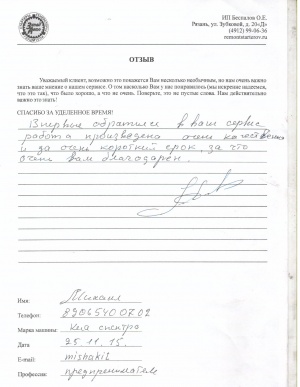 ИП Беспалов О.Е.
Рязань, ул. Зубковой, д. 20«Д»
(4912) 99-06-36
remontstarterov.ru
ОТЗЫВ
Уважаемый клиент, возможно это покажется Вам несколько необычным, но нам очень важно
знать ваше мнение о нашем сервисе. О том насколько Вам у нас понравилось (мы искренне надеемся,
что это так), что было хорошо, а что не очень. Поверьте, это не пустые слова. Нам действительно
важно это знать!
СПАСИБО ЗА УДЕЛЕННОЕ ВРЕМЯ!
Впервые обратился в ваш сервис
работа произведена очень качественно
и за очень короткий срок, за что
очень вам благодарен.
Имя: Михаил
Телефон: 89065400702
Марка машины: Киа спектра
Дата 25.11.15.
E-mail: mishaki1
Профессия: предприниматель